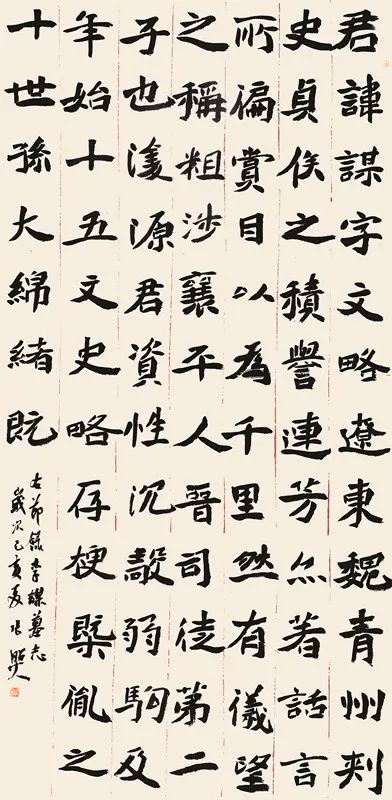 君諱謀字文略遼東魏青州刺
史貞侯之積譽連芳亦若話言
所偏賞目以為千里然有儀望
之稱粗涉襄平人晉司徒第二
子也濬源君資性沉毅弱駒及
年始十五文史略存梗槩胤之
十世孫大綿緒既
右節錄李謀墓志
歲次己亥夏張